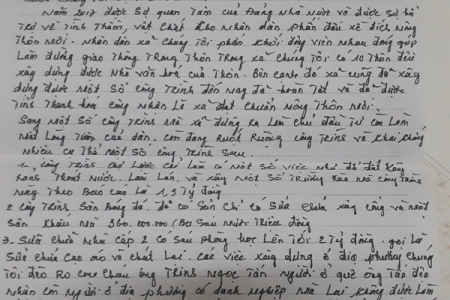 Năm 2017 được sự quan tâm của Đảng Nhà nước và được sự hỗ
Trợ về Tinh Thần, vật chất cho nhân dân phấn đấu về đích nông
Thôn mới. Nhân dân xã chúng tôi phấn khởi động viên nhau đóng góp
Làm đường giao thông Trong Thôn Trong xã chúng Tôi có 10 Thôn đều
xây dựng được Nhà văn hóa của Thôn. Bên cạnh đó xã cũng đã xây
dựng được một số công Trình đến nay đã hoàn Tất và đã được
Tỉnh Thanh hoá công Nhận Là xã đạt chuẩn nông Thôn mới.
Song một số công Trình mà xã đứng ra Làm chủ đầu tư có Làm
mất Lòng Tin của dân. công Trình và khai khống
nhiều cụ Thể một số công Trình sau.
1, công Trình chợ có Làm có một số việc như đổ đất
Thoát nước. Làm và xây một số công Trình
này Theo Báo cáo Là 1,9 Tỷ đồng
2 Công Trình Sân bóng đá đã có sẵn chỉ Tu sửa xây cổng và một
sân khấu mà 360.000.000 (Ba sáu mươi Triệu đồng
3. Sửa chữa Nhà Cấp 2 có sáu phòng học Lên Tới 2 Tỷ đồng. gọi Là
Sửa chữa cạo áo và chát Lại. các việc xây dựng ở địa phương chúng
Tôi đều Do cháu ông Thịnh Ngọc Tân người ở quê ông Tân đều
nhân còn người ở địa phương có doanh nghiệp mà Lại không được Làm